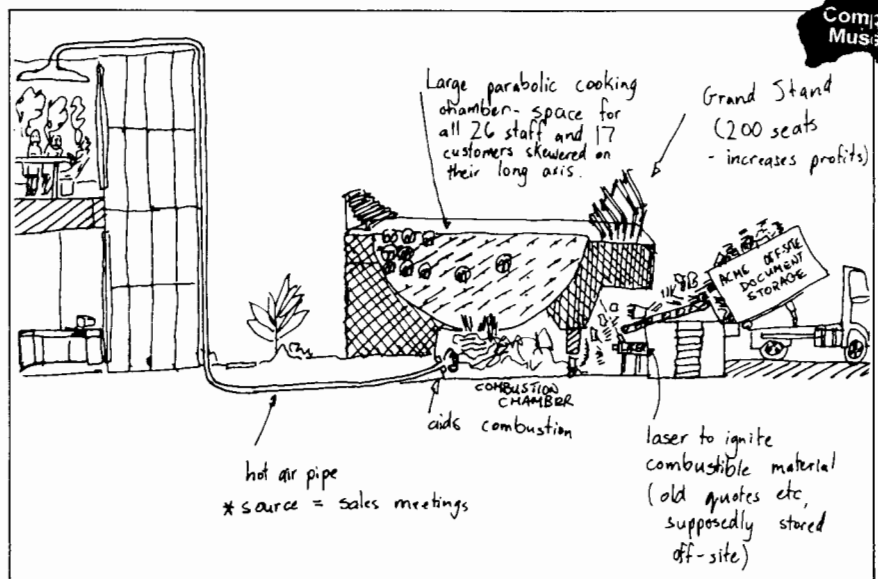 Large parabolic cooking
chamber - space for
all 26 staff and 17
customers skewered on
their long axis.
Grand Stand
(200 seats
- increases profits)
ACME OFF-SITE
DOCUMENT
STORAGE
COMBUSTION
CHAMBER
aids combustion
hot air pipe
* source = sales meetings
laser to ignite
combustible material
(old quotes etc,
supposedly stored
off-site)